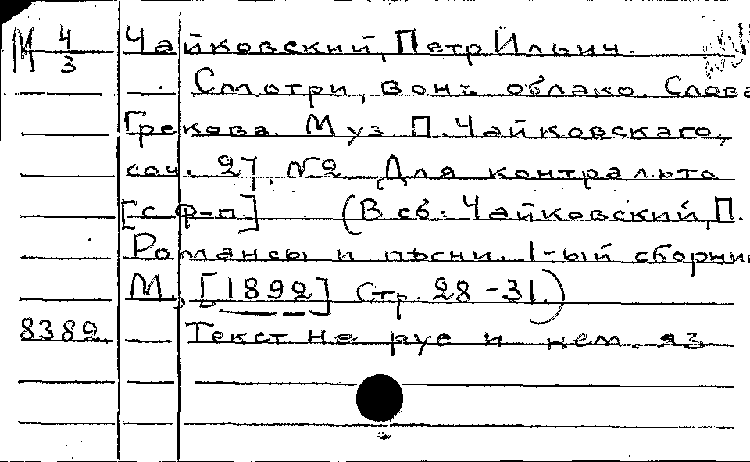 М 4/3 Чайковский, Петр Ильич.
Смотри, вонъ облако. Слова
Грекова. Муз. П. Чайковскаго,
соч. 27, №2. Для контральто
[с ф-п.] (В сб.: Чайковский, П.
Романсы и пѣсни. 1-ый сборни
М., [1892] Стр. 28-31.)
8382. Текст на рус и нем. яз